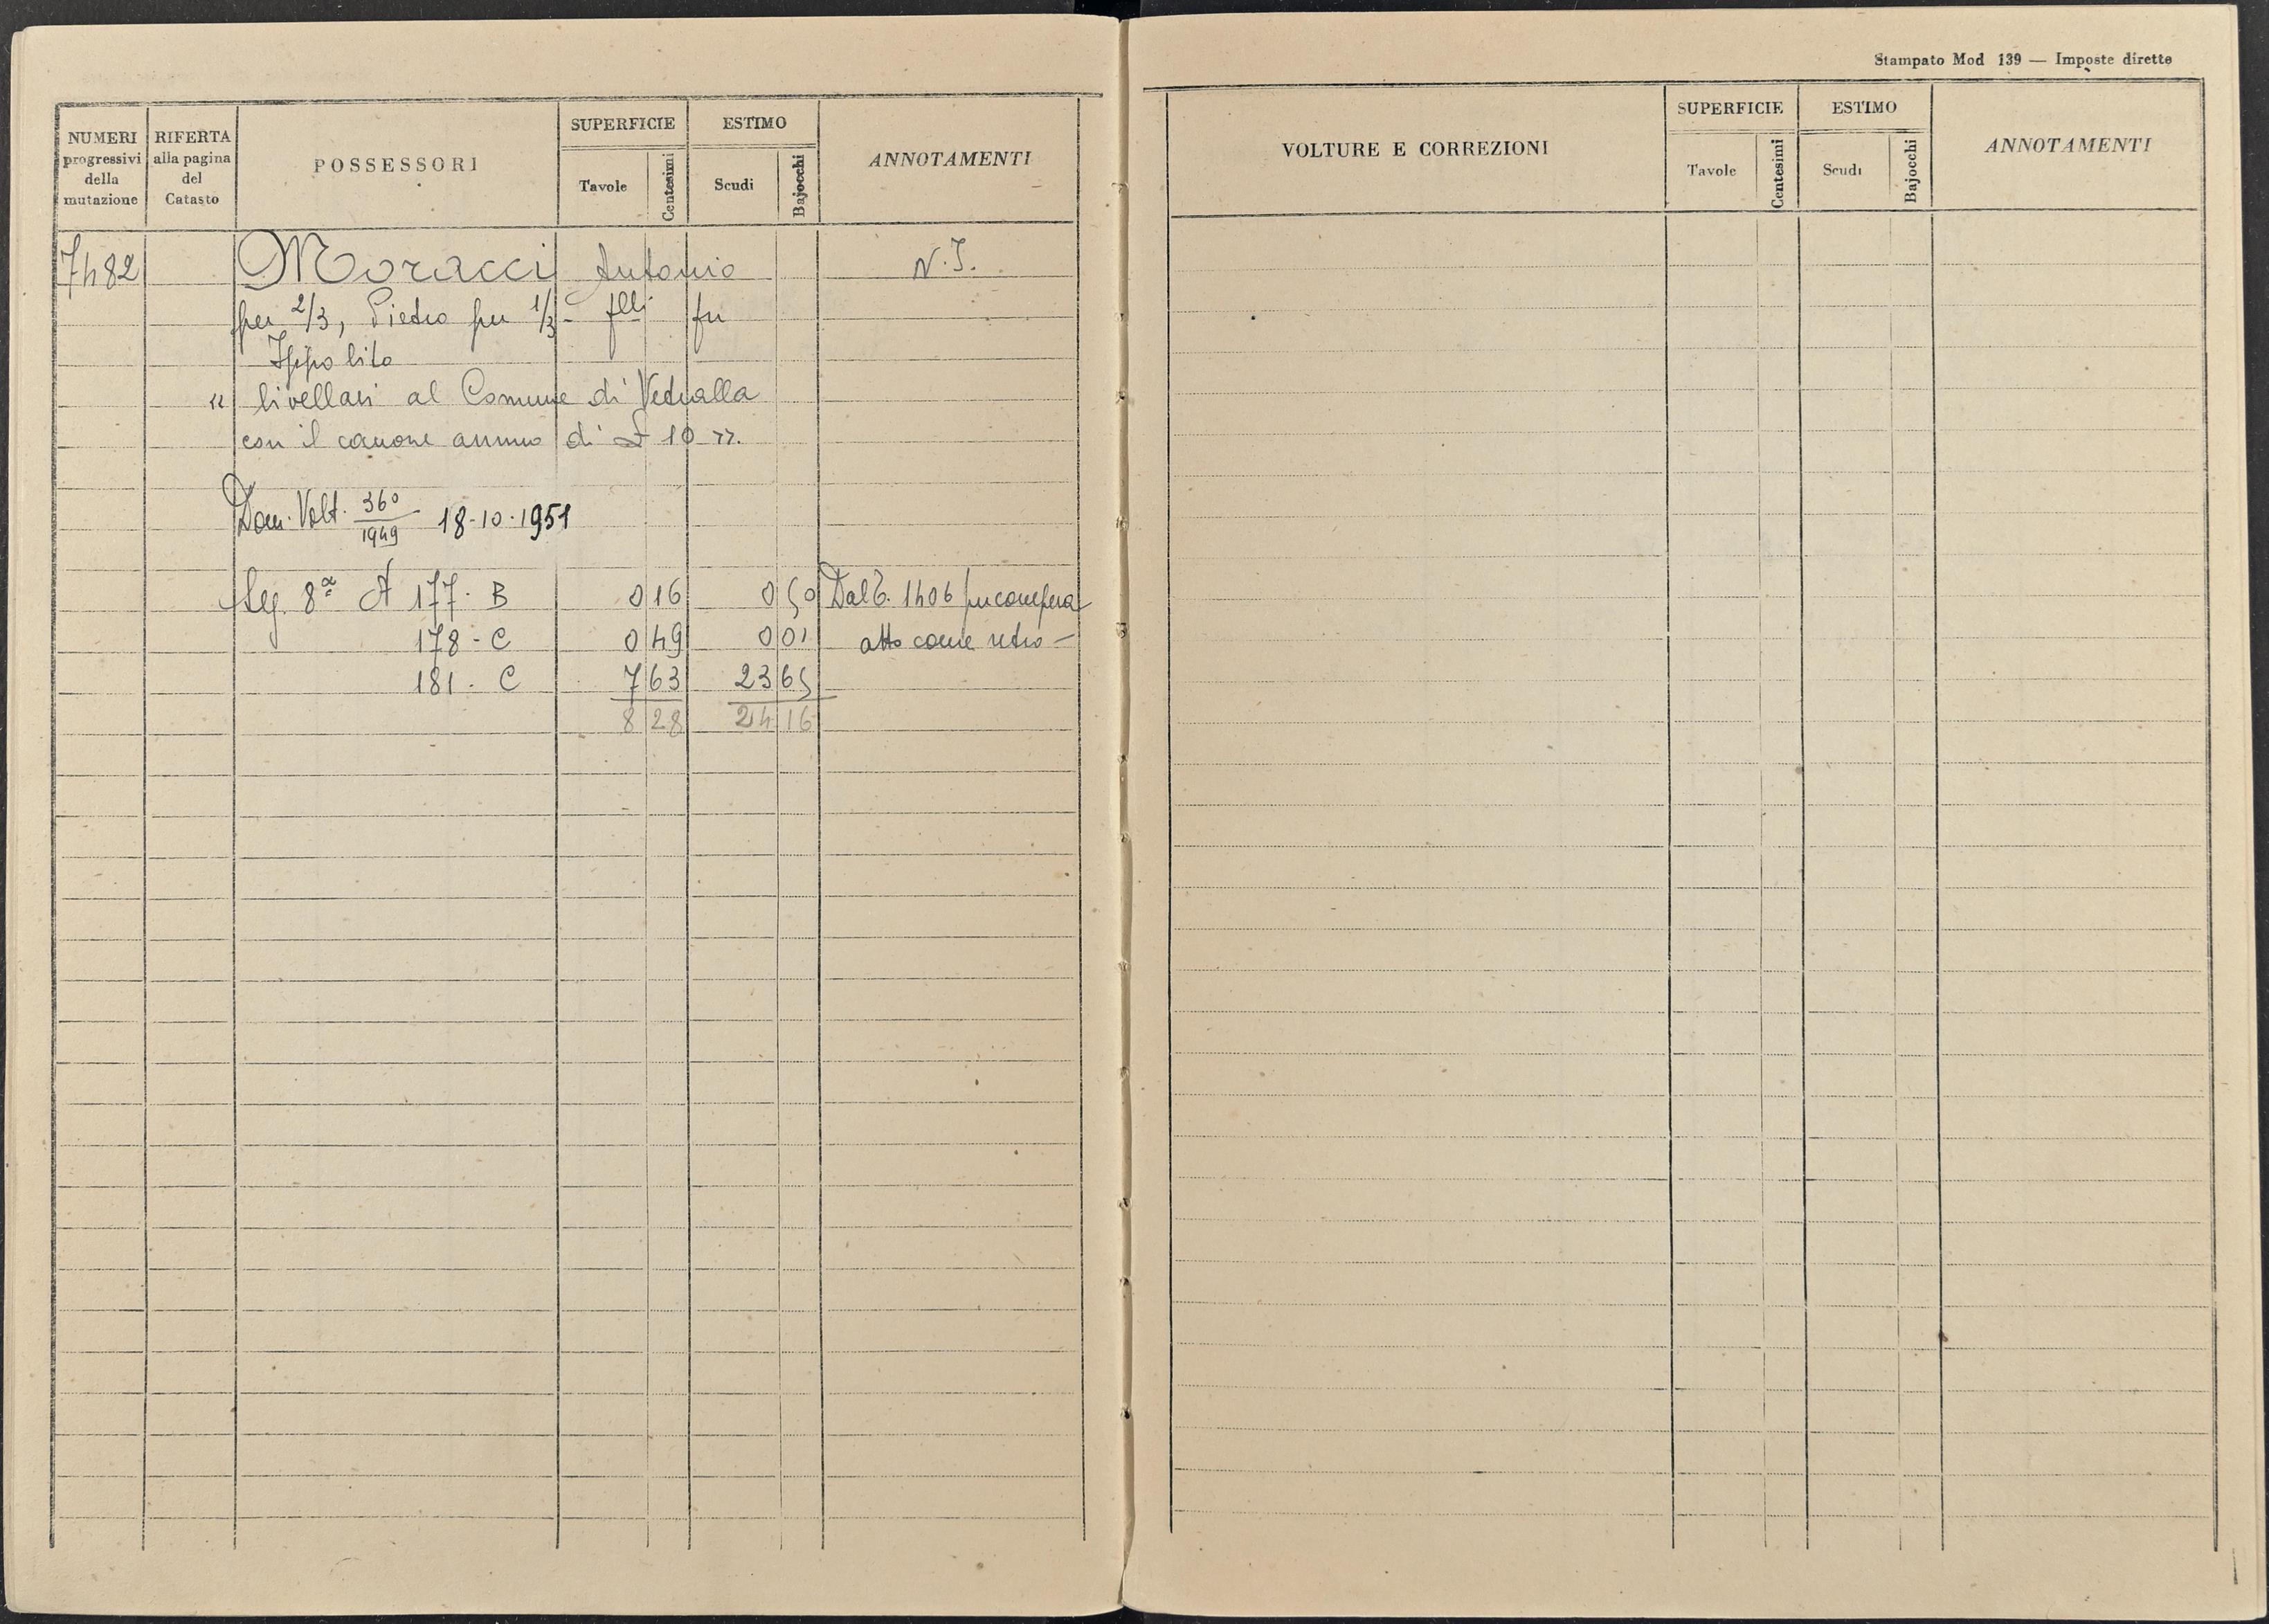 NUMERI progressivi della mutazione
RIFERTA alla pagina del Catasto
POSSESSORI
SUPERFICIE
Tavole
Centesimi
ESTIMO
Scudi
Bajocchi
ANNOTAMENTI
7482 Moracci Antonio N.I.
per 2/3, Pietro per 1/3 - flli fu
Ippolito
" livellari al Comune di Vetralla
con il canone annuo di £ 10 "
Dom. Volt. 360/1949 18-10-1951
Seg. 8ª A 177 - B 0 16 0 50 Dal C. 1406 per compera
178 - C 0 49 0 01 atto come retro -
181 - C 7 63 23 65
8 28 24 16
Stampato Mod 139 — Imposte dirette
VOLTURE E CORREZIONI
SUPERFICIE
Tavole
Centesimi
ESTIMO
Scudi
Bajocchi
ANNOTAMENTI